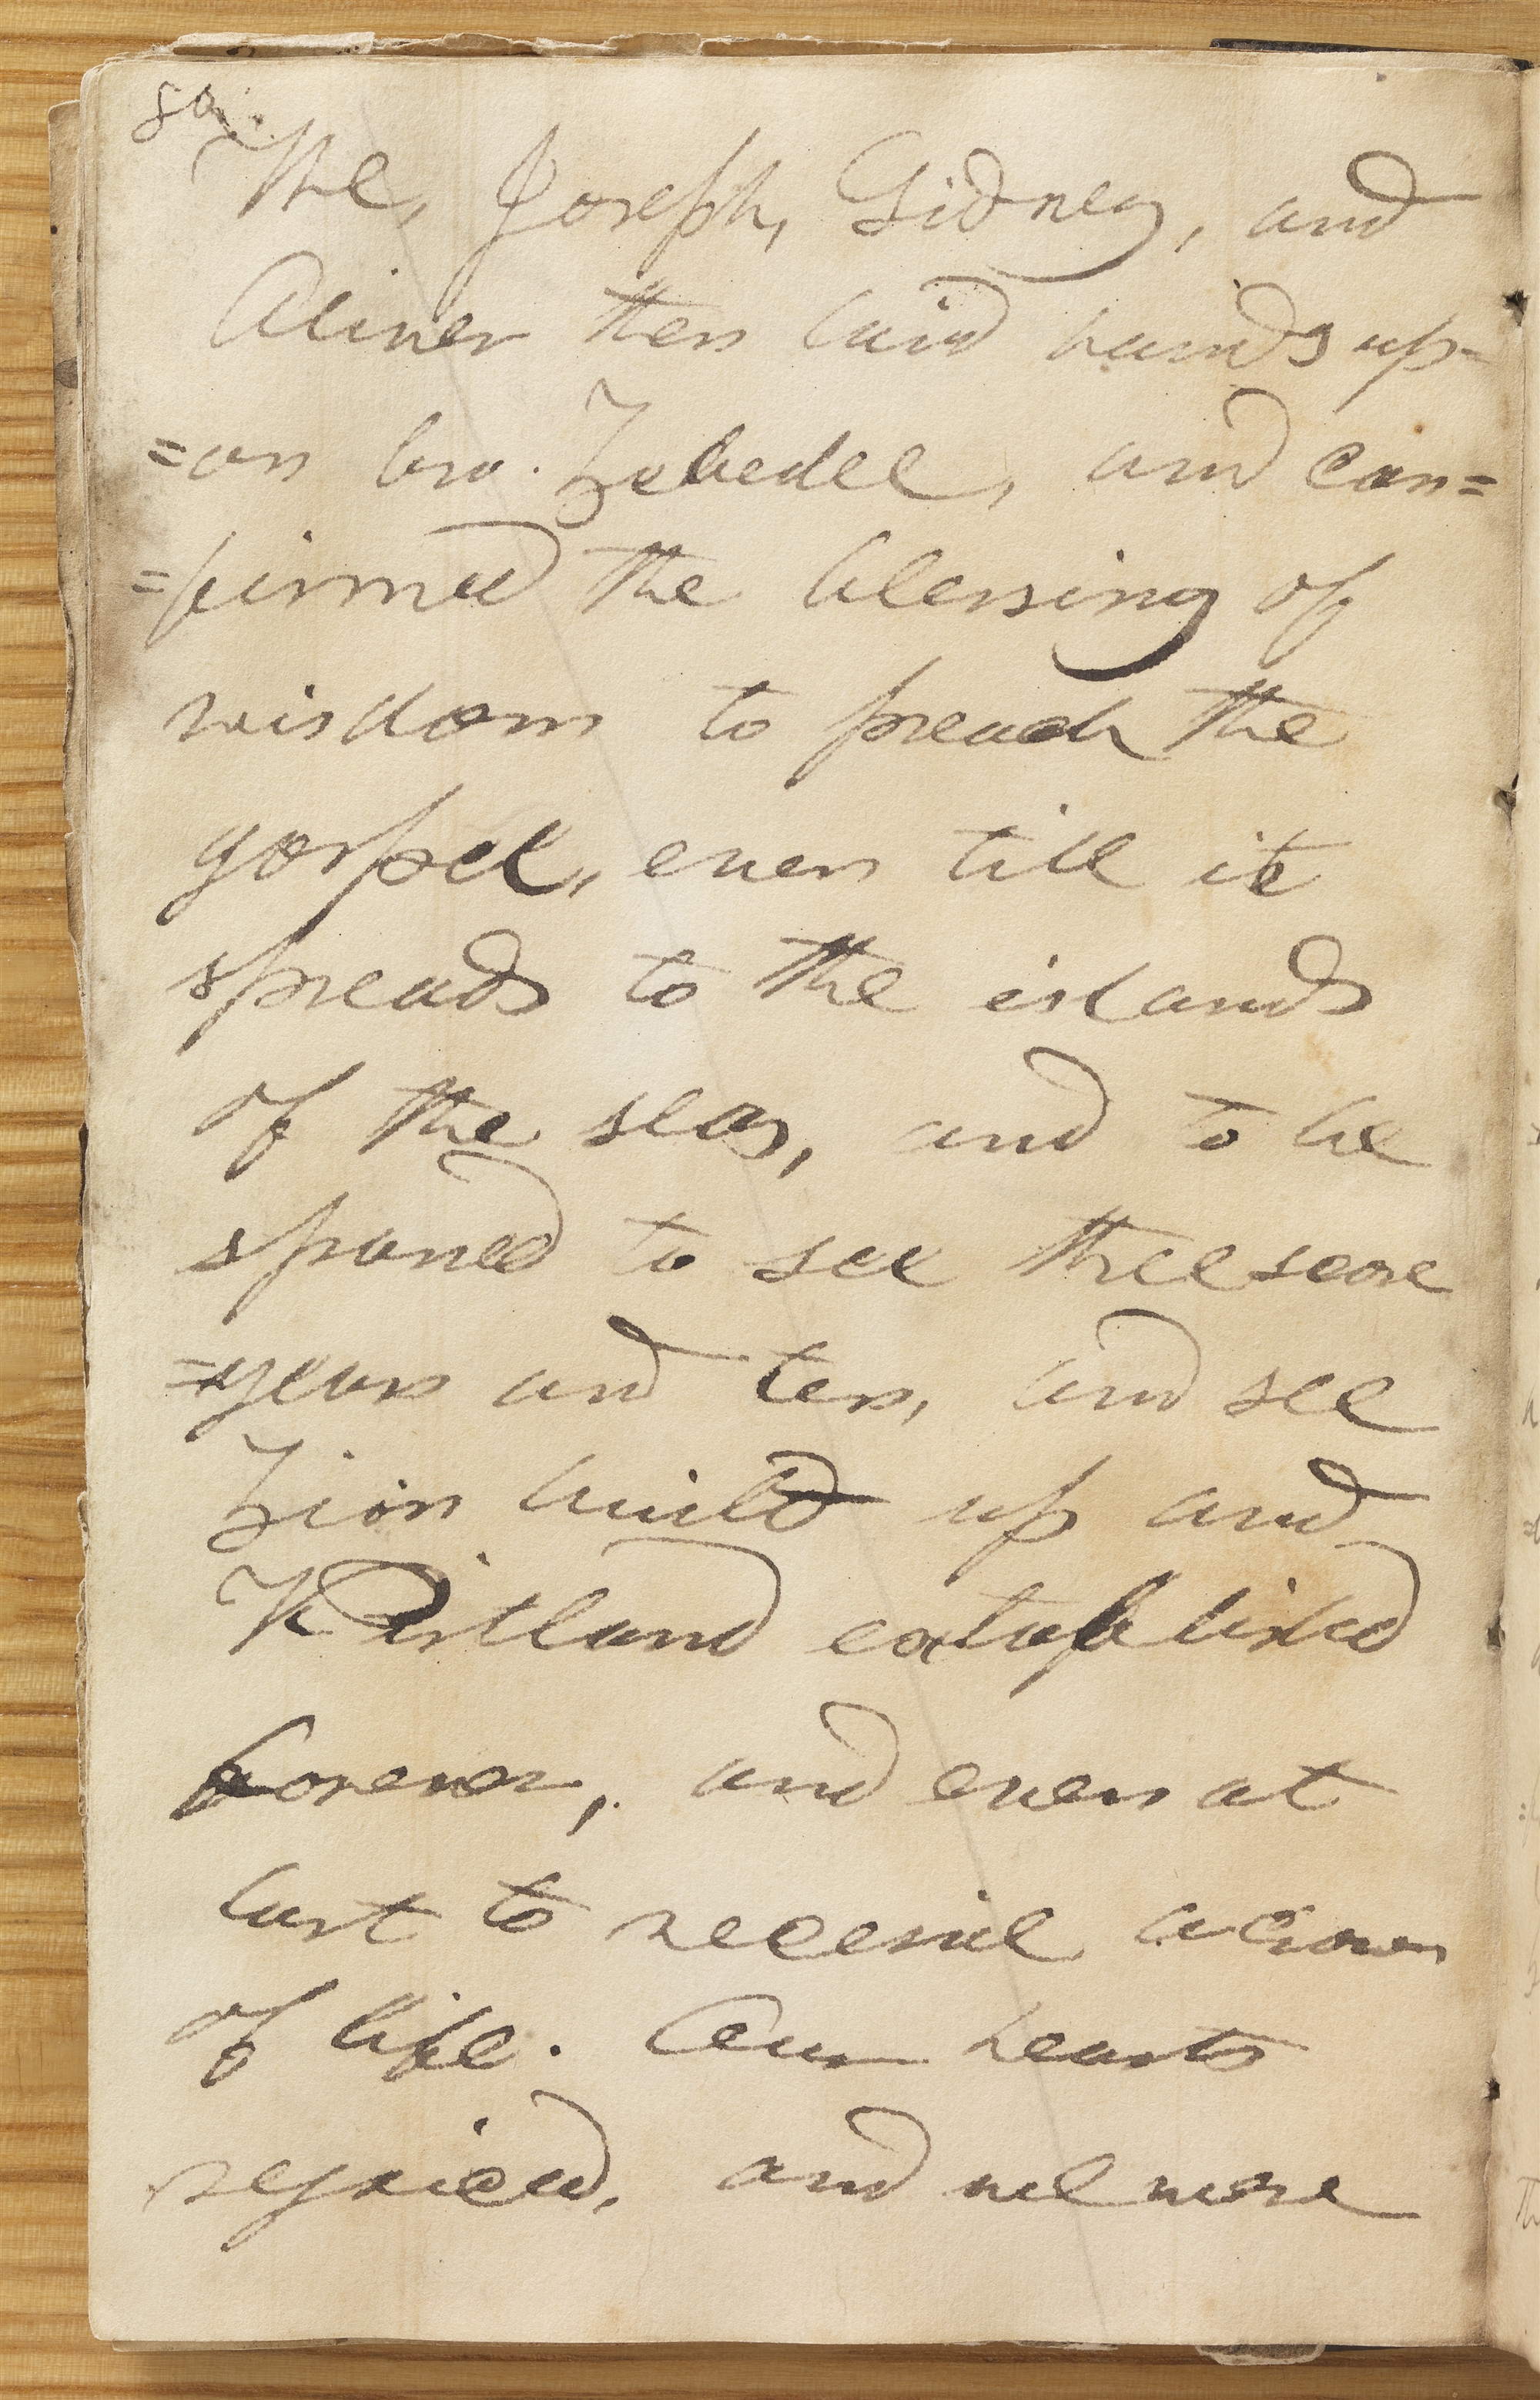 80.
The, Joseph, Sidney, and
Oliver then laid hands up-
=on bro. Zebedee, and con=
=firmed the blessing of
wisdom to preach the
gospel, even till it
spreads to the islands
of the seas, and to be
spared to see threescore
=years and ten, and see
Zion built up and
Kirtland established
forever, and even at
last to receive a crown
of life. Our hearts
rejoiced, and we were